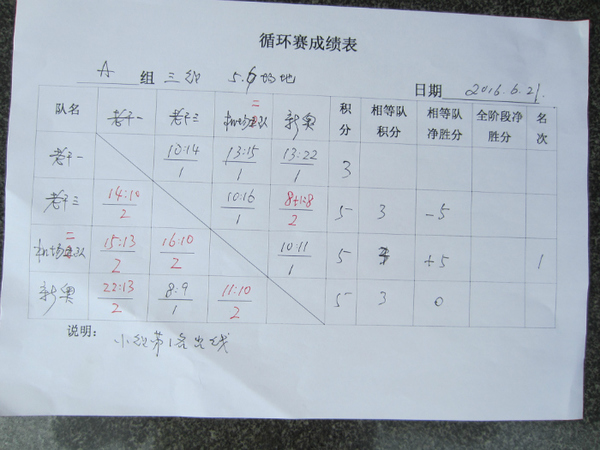 循环赛成绩表
A 组 三组 5.6场地
日期 2016.6.21.
队名 老干一 老干三 机场二队 新奥 积分 相等队积分 相等队净胜分 全阶段净胜分 名次
老干一 10:14/1 13:15/1 13:22/1 3
老干三 14:10/2 10:16/1 8+1:8/2 5 3 -5
机场二队 15:13/2 16:10/2 10:11/1 5 +5 1
新奥 22:13/2 8:9/1 11:10/2 5 3 0
说明: 小组第1名出线